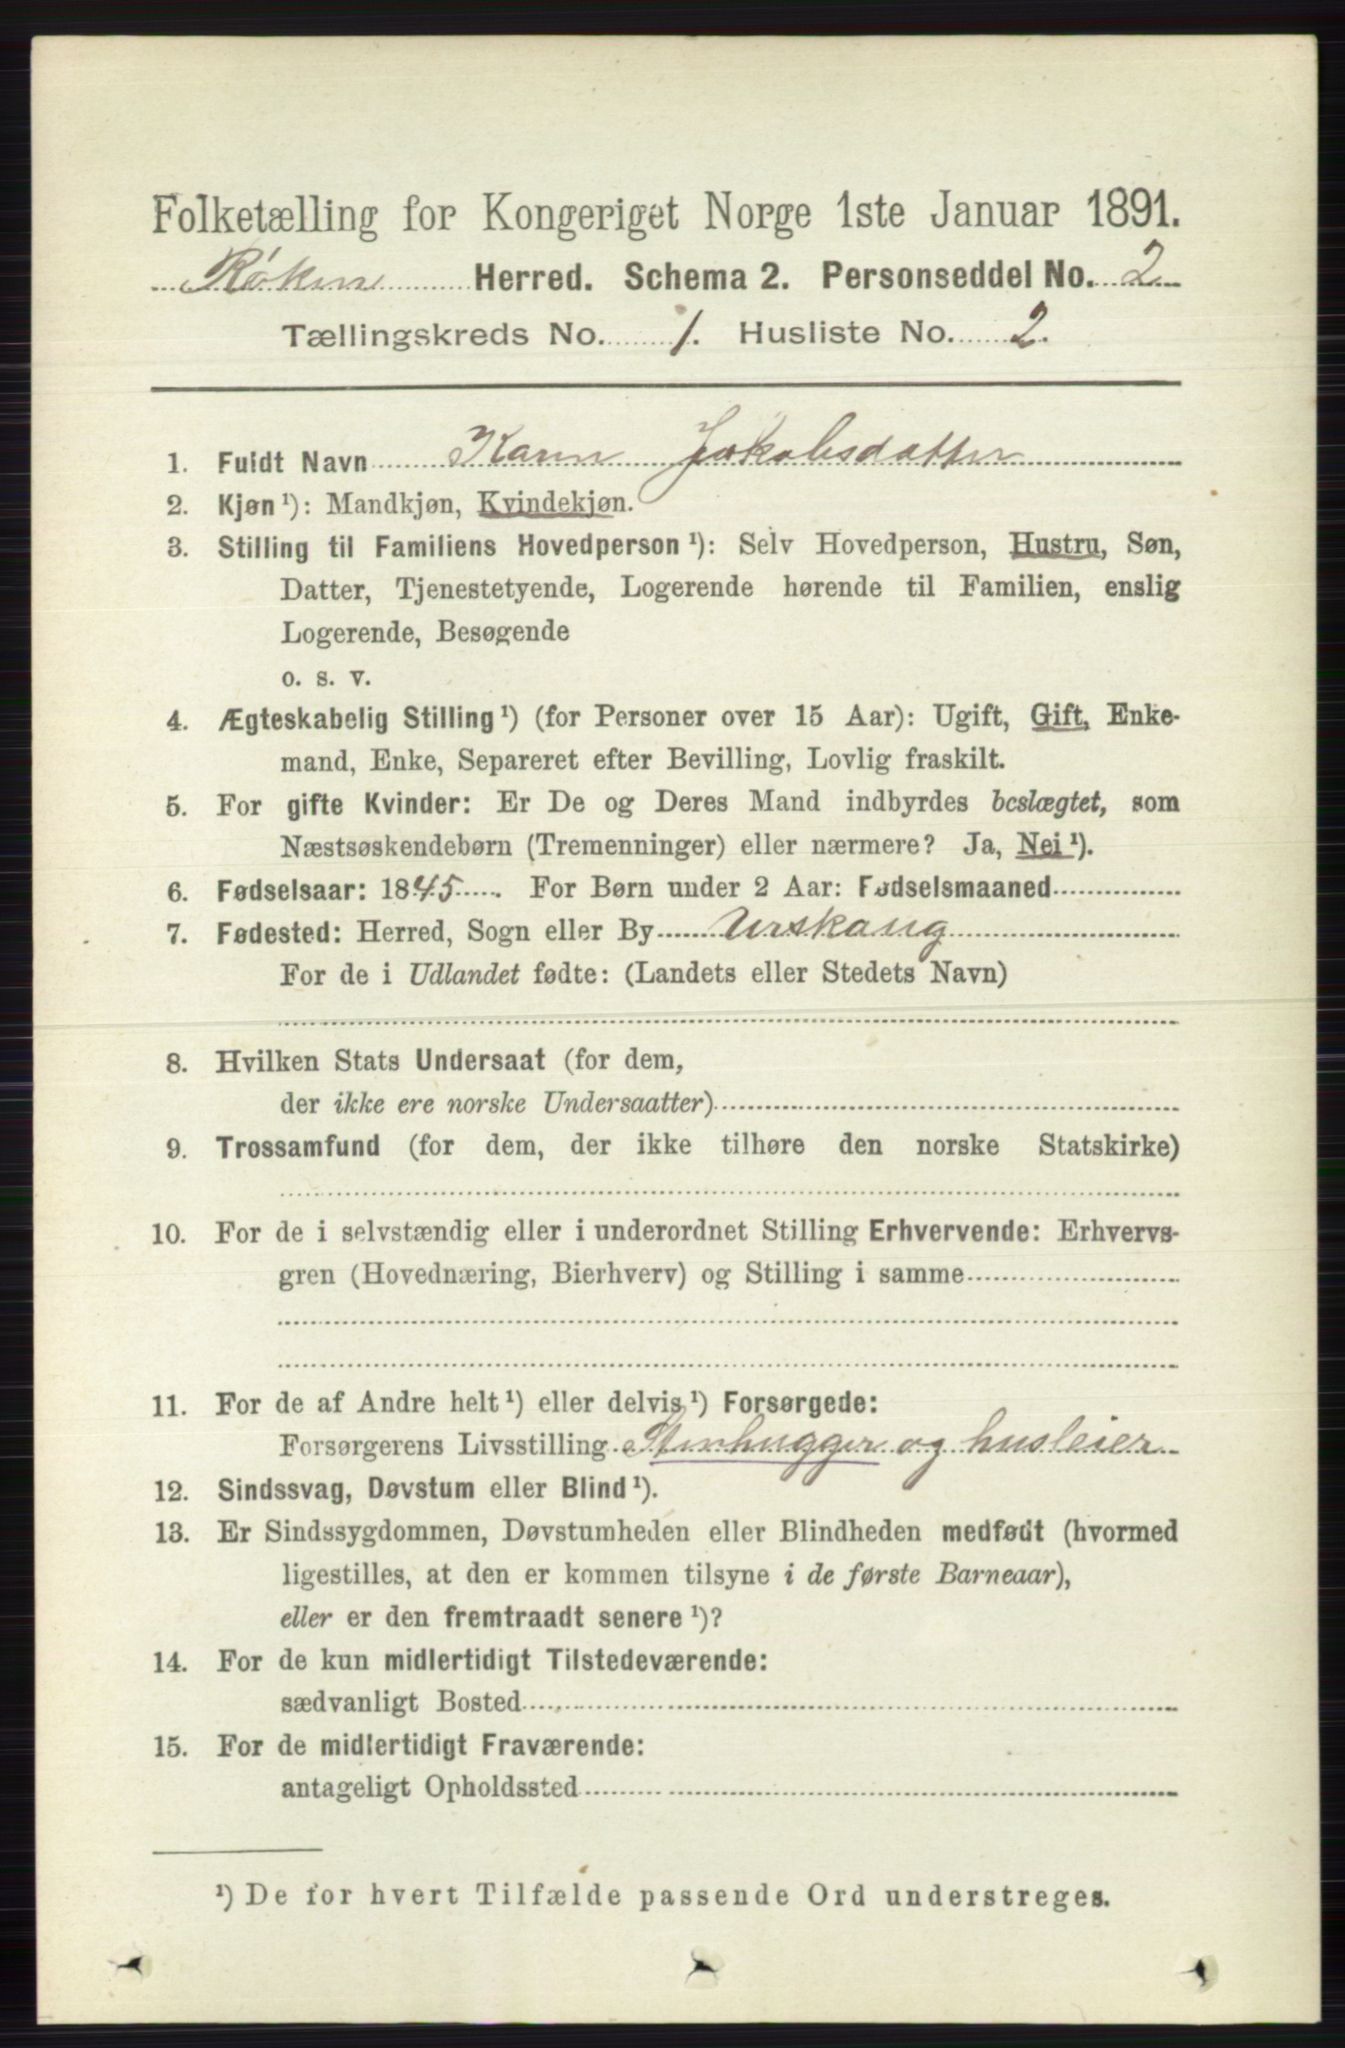 Folketælling for Kongeriget Norge 1ste Januar 1891.
Røken Herred. Schema 2. Personseddel No. 2
Tællingskreds No. 1. Husliste No. 2.
1. Fuldt Navn Karen Jakobsdatter
2. Kjøn¹): Mandkjøn, Kvindekjøn.
3. Stilling til Familiens Hovedperson¹): Selv Hovedperson, Hustru, Søn,
Datter, Tjenestetyende, Logerende hørende til Familien, enslig
Logerende, Besøgende
o. s. v.
4. Ægteskabelig Stilling¹) (for Personer over 15 Aar): Ugift, Gift, Enke-
mand, Enke, Separeret efter Bevilling, Lovlig fraskilt.
5. For gifte Kvinder: Er De og Deres Mand indbyrdes beslægtet, som
Næstsøskendebørn (Tremenninger) eller nærmere? Ja, Nei¹).
6. Fødselsaar: 1845. For Børn under 2 Aar: Fødselsmaaned
7. Fødested: Herred, Sogn eller By Urskaug
For de i Udlandet fødte: (Landets eller Stedets Navn)
8. Hvilken Stats Undersaat (for dem,
der ikke ere norske Undersaatter)
9. Trossamfund (for dem, der ikke tilhøre den norske Statskirke)
10. For de i selvstændig eller i underordnet Stilling Erhvervende: Erhvervs-
gren (Hovednæring, Bierhverv) og Stilling i samme
11. For de af Andre helt¹) eller delvis¹) Forsørgede:
Forsørgerens Livsstilling Stenhugger og husleier
12. Sindssvag, Døvstum eller Blind¹).
13. Er Sindssygdommen, Døvstumheden eller Blindheden medfødt (hvormed
ligestilles, at den er kommen tilsyne i de første Barneaar),
eller er den fremtraadt senere¹)?
14. For de kun midlertidigt Tilstedeværende:
sædvanligt Bosted
15. For de midlertidigt Fraværende:
antageligt Opholdssted
¹) De for hvert Tilfælde passende Ord understreges.